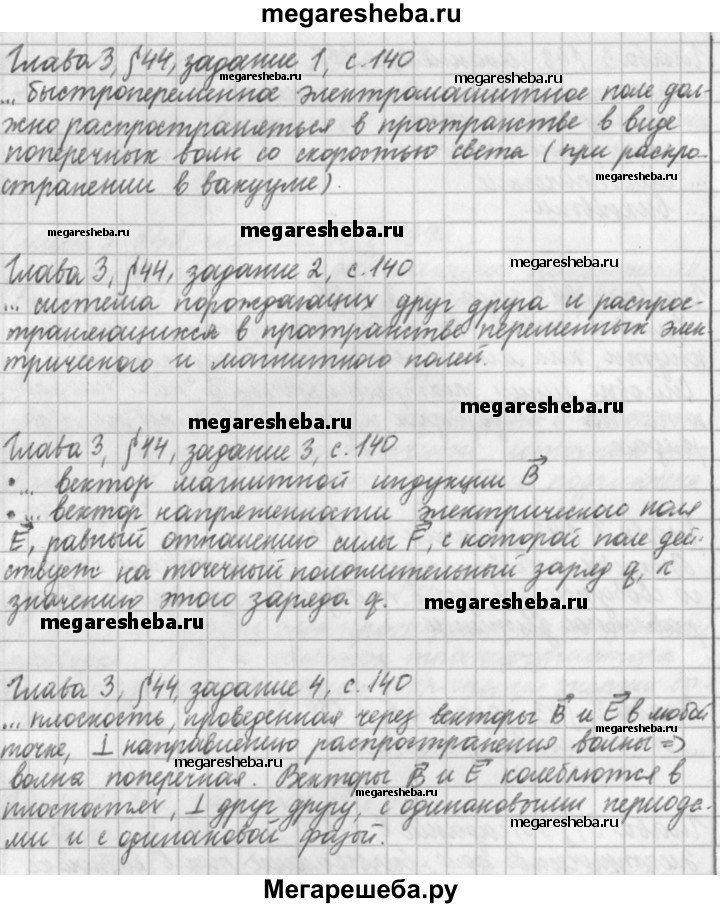 megaresheba.ru
Глава 3, §44, задание 1, с. 140
megaresheba.ru
megaresheba.ru
... быстропеременное электромагнитное поле дол-
жно распространяться в пространстве в виде
megaresheba.ru
поперечных волн со скоростью света (при распро-
megaresheba.ru
странении в вакууме).
megaresheba.ru
Глава 3, §44, задание 2, с. 140
megaresheba.ru
... система порождающих друг друга и распрос-
траняющихся в пространстве переменных элек-
megaresheba.ru
трического и магнитного полей.
megaresheba.ru
megaresheba.ru
Глава 3, §44, задание 3, с. 140
• ... вектор магнитной индукции B⃗
megaresheba.ru
• ... вектор напряженности электрического поля
E⃗, равный отношению силы F⃗, с которой поле дей-
ствует на точечный положительный заряд q, к
значению этого заряда q.
megaresheba.ru
megaresheba.ru
Глава 3, §44, задание 4, с. 140
... плоскость, проведенная через векторы B⃗ и E⃗ в любой
megaresheba.ru
точке, ⊥ направлению распространения волны =>
megaresheba.ru
волна поперечная. Векторы B⃗ и E⃗ колеблются в
megaresheba.ru
плоскостях, ⊥ друг другу, с одинаковыми периода-
megaresheba.ru
ми и с одинаковой фазой.
Мегарешеба.ру